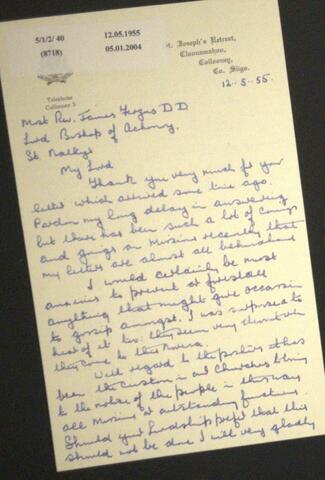 5/1/2/ 40 12.05.1955
(8718) 05.01.2004
St. Joseph's Retreat,
Cloonamahon,
Collooney,
Co. Sligo.
Telephone
Collooney 5
12-5-55.
Most Rev. James Fergus D D
Lord Bishop of Achonry.
St. Nathys
My Lord
Thank you very much for your
letter which arrived some time ago.
Pardon my long delay in answering
but there has been such a lot of comings
and goings on Missions recently that
my letters are almost all behindhand
I would certainly be most
anxious to prevent or forestall
anything that might give occasion
to gossip amongst. I was surprised to
hear of it too: they seem very
they come to the Novena.
With regard to the posters it has
been the custom in all Churches to bring
to the notice of the people in this way
all Missions or outstanding functions.
Should your Lordship prefer that this
should not be done I will very gladly